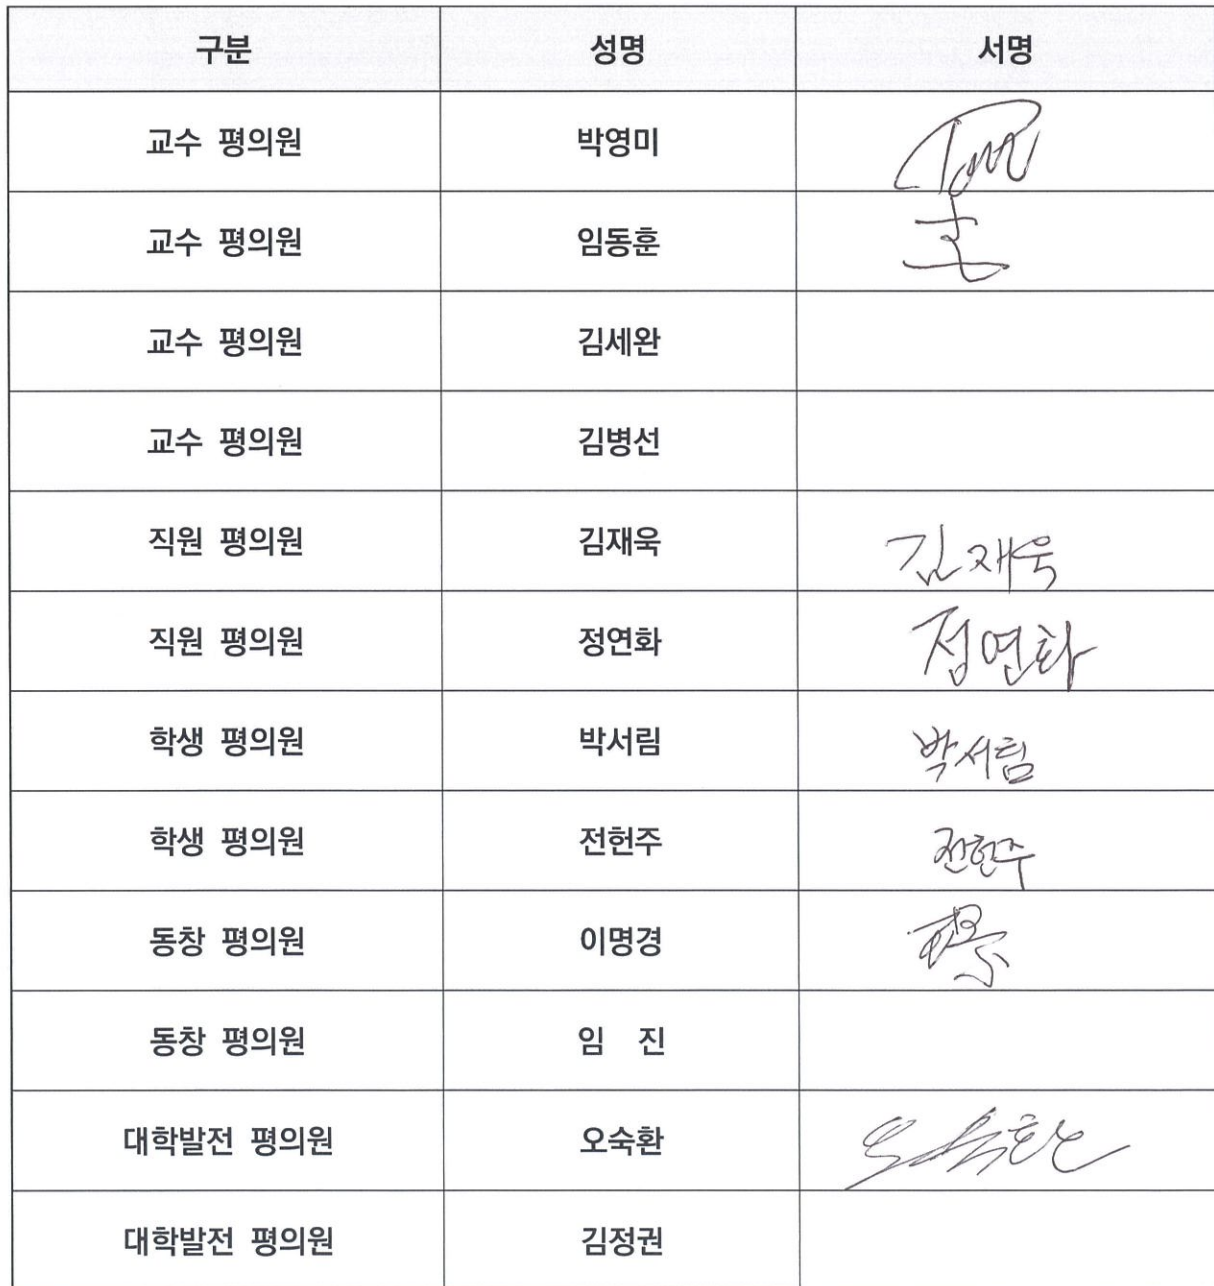 구분 성명 서명
교수 평의원 박영미
교수 평의원 임동훈
교수 평의원 김세완
교수 평의원 김병선
직원 평의원 김재욱 김재욱
직원 평의원 정연화 정연화
학생 평의원 박서림 박서림
학생 평의원 전헌주 전헌주
동창 평의원 이명경
동창 평의원 임 진
대학발전 평의원 오숙환 오숙환
대학발전 평의원 김정권